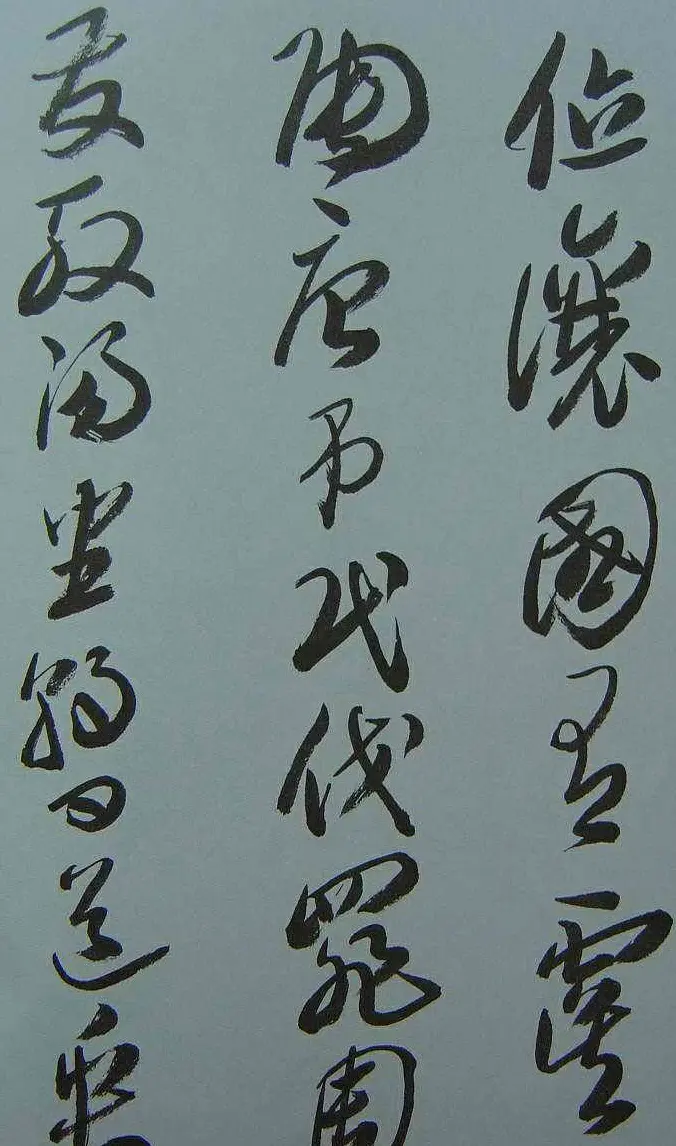 位讓國有虞
陶唐弔民伐罪周
發殷湯坐朝問道垂